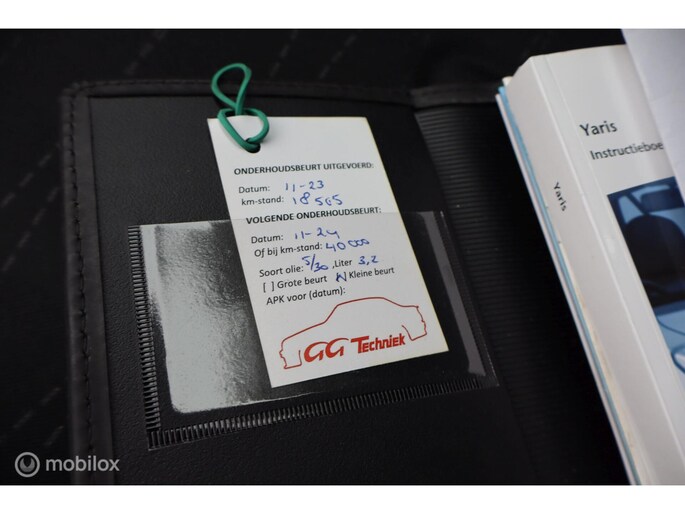 ONDERHOUDSBEURT UITGEVOERD:
Datum: 11-23
km-stand: 18505
VOLGENDE ONDERHOUDSBEURT:
Datum: 11-24
Of bij km-stand: 40000
Soort olie: 5/30 ,Liter 3,2
[ ] Grote beurt [x] Kleine beurt
APK voor (datum):
GG Techniek
Yaris
Instructieboe
Yaris
mobilox